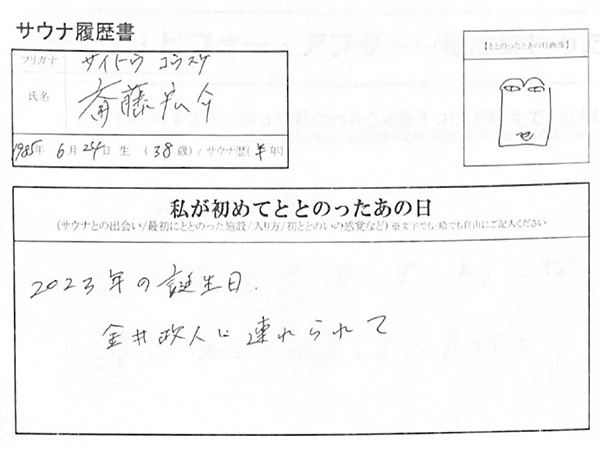 サウナ履歴書
フリガナ サイトウ コウスケ
氏名 斎藤宏介
1985年 6月24日生 (38歳)/サウナ歴(半年)
【ととのったときの自画像】
私が初めてととのったあの日
(サウナとの出会い/最初にととのった施設/入り方/初ととのいの感覚など)※文字でも/絵でも自由にご記入ください
2023年の誕生日.
金井政人に連れられて